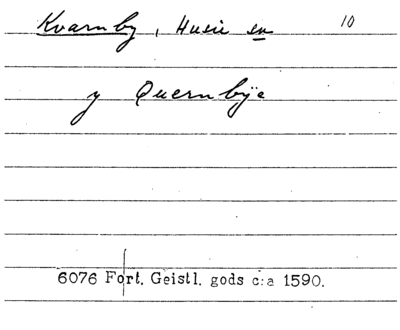 Kvarnby, Husie sn 10
y Quernbÿe
6076 Fort. Geistl. gods c:a 1590.